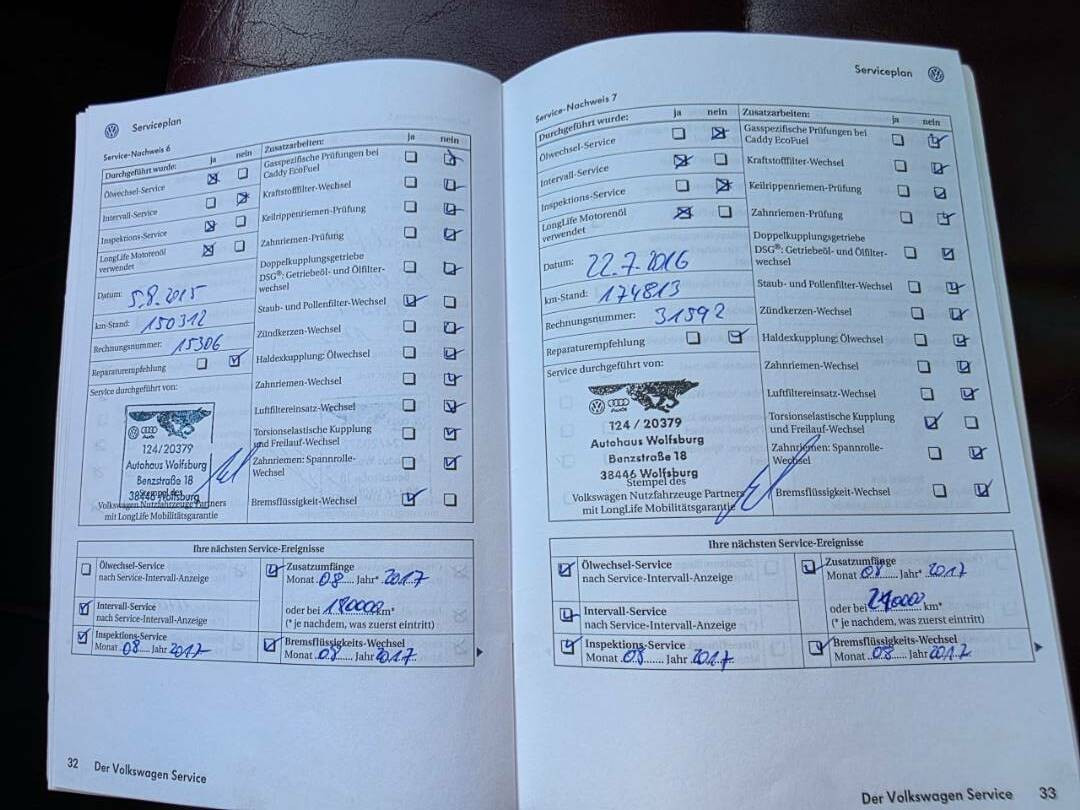 Serviceplan
Service-Nachweis 6
Durchgeführt wurde: ja nein
Ölwechsel-Service
Intervall-Service
Inspektions-Service
LongLife Motorenöl
verwendet
Datum: 5.8.2015
km-Stand: 150312
Rechnungsnummer: 15306
Reparaturempfehlung
Service durchgeführt von:
Audi
124/20379
Autohaus Wolfsburg
Benzstraße 18
38446 Wolfsburg
Stempel des
Volkswagen Nutzfahrzeuge Partners
mit LongLife Mobilitätsgarantie
Zusatzarbeiten: ja nein
Gasspezifische Prüfungen bei
Caddy EcoFuel
Kraftstofffilter-Wechsel
Keilrippenriemen-Prüfung
Zahnriemen-Prüfung
Doppelkupplungsgetriebe
DSG®: Getriebeöl- und Ölfilter-
wechsel
Staub- und Pollenfilter-Wechsel
Zündkerzen-Wechsel
Haldexkupplung: Ölwechsel
Zahnriemen-Wechsel
Luftfiltereinsatz-Wechsel
Torsionselastische Kupplung
und Freilauf-Wechsel
Zahnriemen: Spannrolle-
Wechsel
Bremsflüssigkeit-Wechsel
Ihre nächsten Service-Ereignisse
Ölwechsel-Service
nach Service-Intervall-Anzeige
Intervall-Service
nach Service-Intervall-Anzeige
Inspektions-Service
Monat 08 Jahr 2017
Zusatzumfänge
Monat 08 Jahr* 2017
oder bei 180000 km*
(* je nachdem, was zuerst eintritt)
Bremsflüssigkeits-Wechsel
Monat 08 Jahr 2017
32 Der Volkswagen Service
Serviceplan
Service-Nachweis 7
Durchgeführt wurde: ja nein
Ölwechsel-Service
Intervall-Service
Inspektions-Service
LongLife Motorenöl
verwendet
Datum: 22.7.2016
km-Stand: 174813
Rechnungsnummer: 31592
Reparaturempfehlung
Service durchgeführt von:
Audi
124 / 20379
Autohaus Wolfsburg
Benzstraße 18
38446 Wolfsburg
Stempel des
Volkswagen Nutzfahrzeuge Partners
mit LongLife Mobilitätsgarantie
Zusatzarbeiten: ja nein
Gasspezifische Prüfungen bei
Caddy EcoFuel
Kraftstofffilter-Wechsel
Keilrippenriemen-Prüfung
Zahnriemen-Prüfung
Doppelkupplungsgetriebe
DSG®: Getriebeöl- und Ölfilter-
wechsel
Staub- und Pollenfilter-Wechsel
Zündkerzen-Wechsel
Haldexkupplung: Ölwechsel
Zahnriemen-Wechsel
Luftfiltereinsatz-Wechsel
Torsionselastische Kupplung
und Freilauf-Wechsel
Zahnriemen: Spannrolle-
Wechsel
Bremsflüssigkeit-Wechsel
Ihre nächsten Service-Ereignisse
Ölwechsel-Service
nach Service-Intervall-Anzeige
Intervall-Service
nach Service-Intervall-Anzeige
Inspektions-Service
Monat 08 Jahr 2017
Zusatzumfänge
Monat 08 Jahr* 2017
oder bei km*
(* je nachdem, was zuerst eintritt)
Bremsflüssigkeits-Wechsel
Monat 08 Jahr 2017
Der Volkswagen Service 33